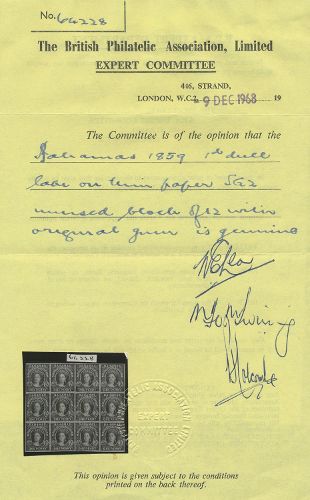 No. 64228
The British Philatelic Association, Limited
EXPERT COMMITTEE
446, STRAND,
LONDON, W.C.2. 9 DEC 1968 19
The Committee is of the opinion that the
Bahamas 1859 1d dull
lake on thin paper SG2
unused block of 12 with
original gum is genuine
64228
PHILATELIC ASSOCIATION LIMITED
EXPERT
COMMITTEE
This opinion is given subject to the conditions
printed on the back thereof.